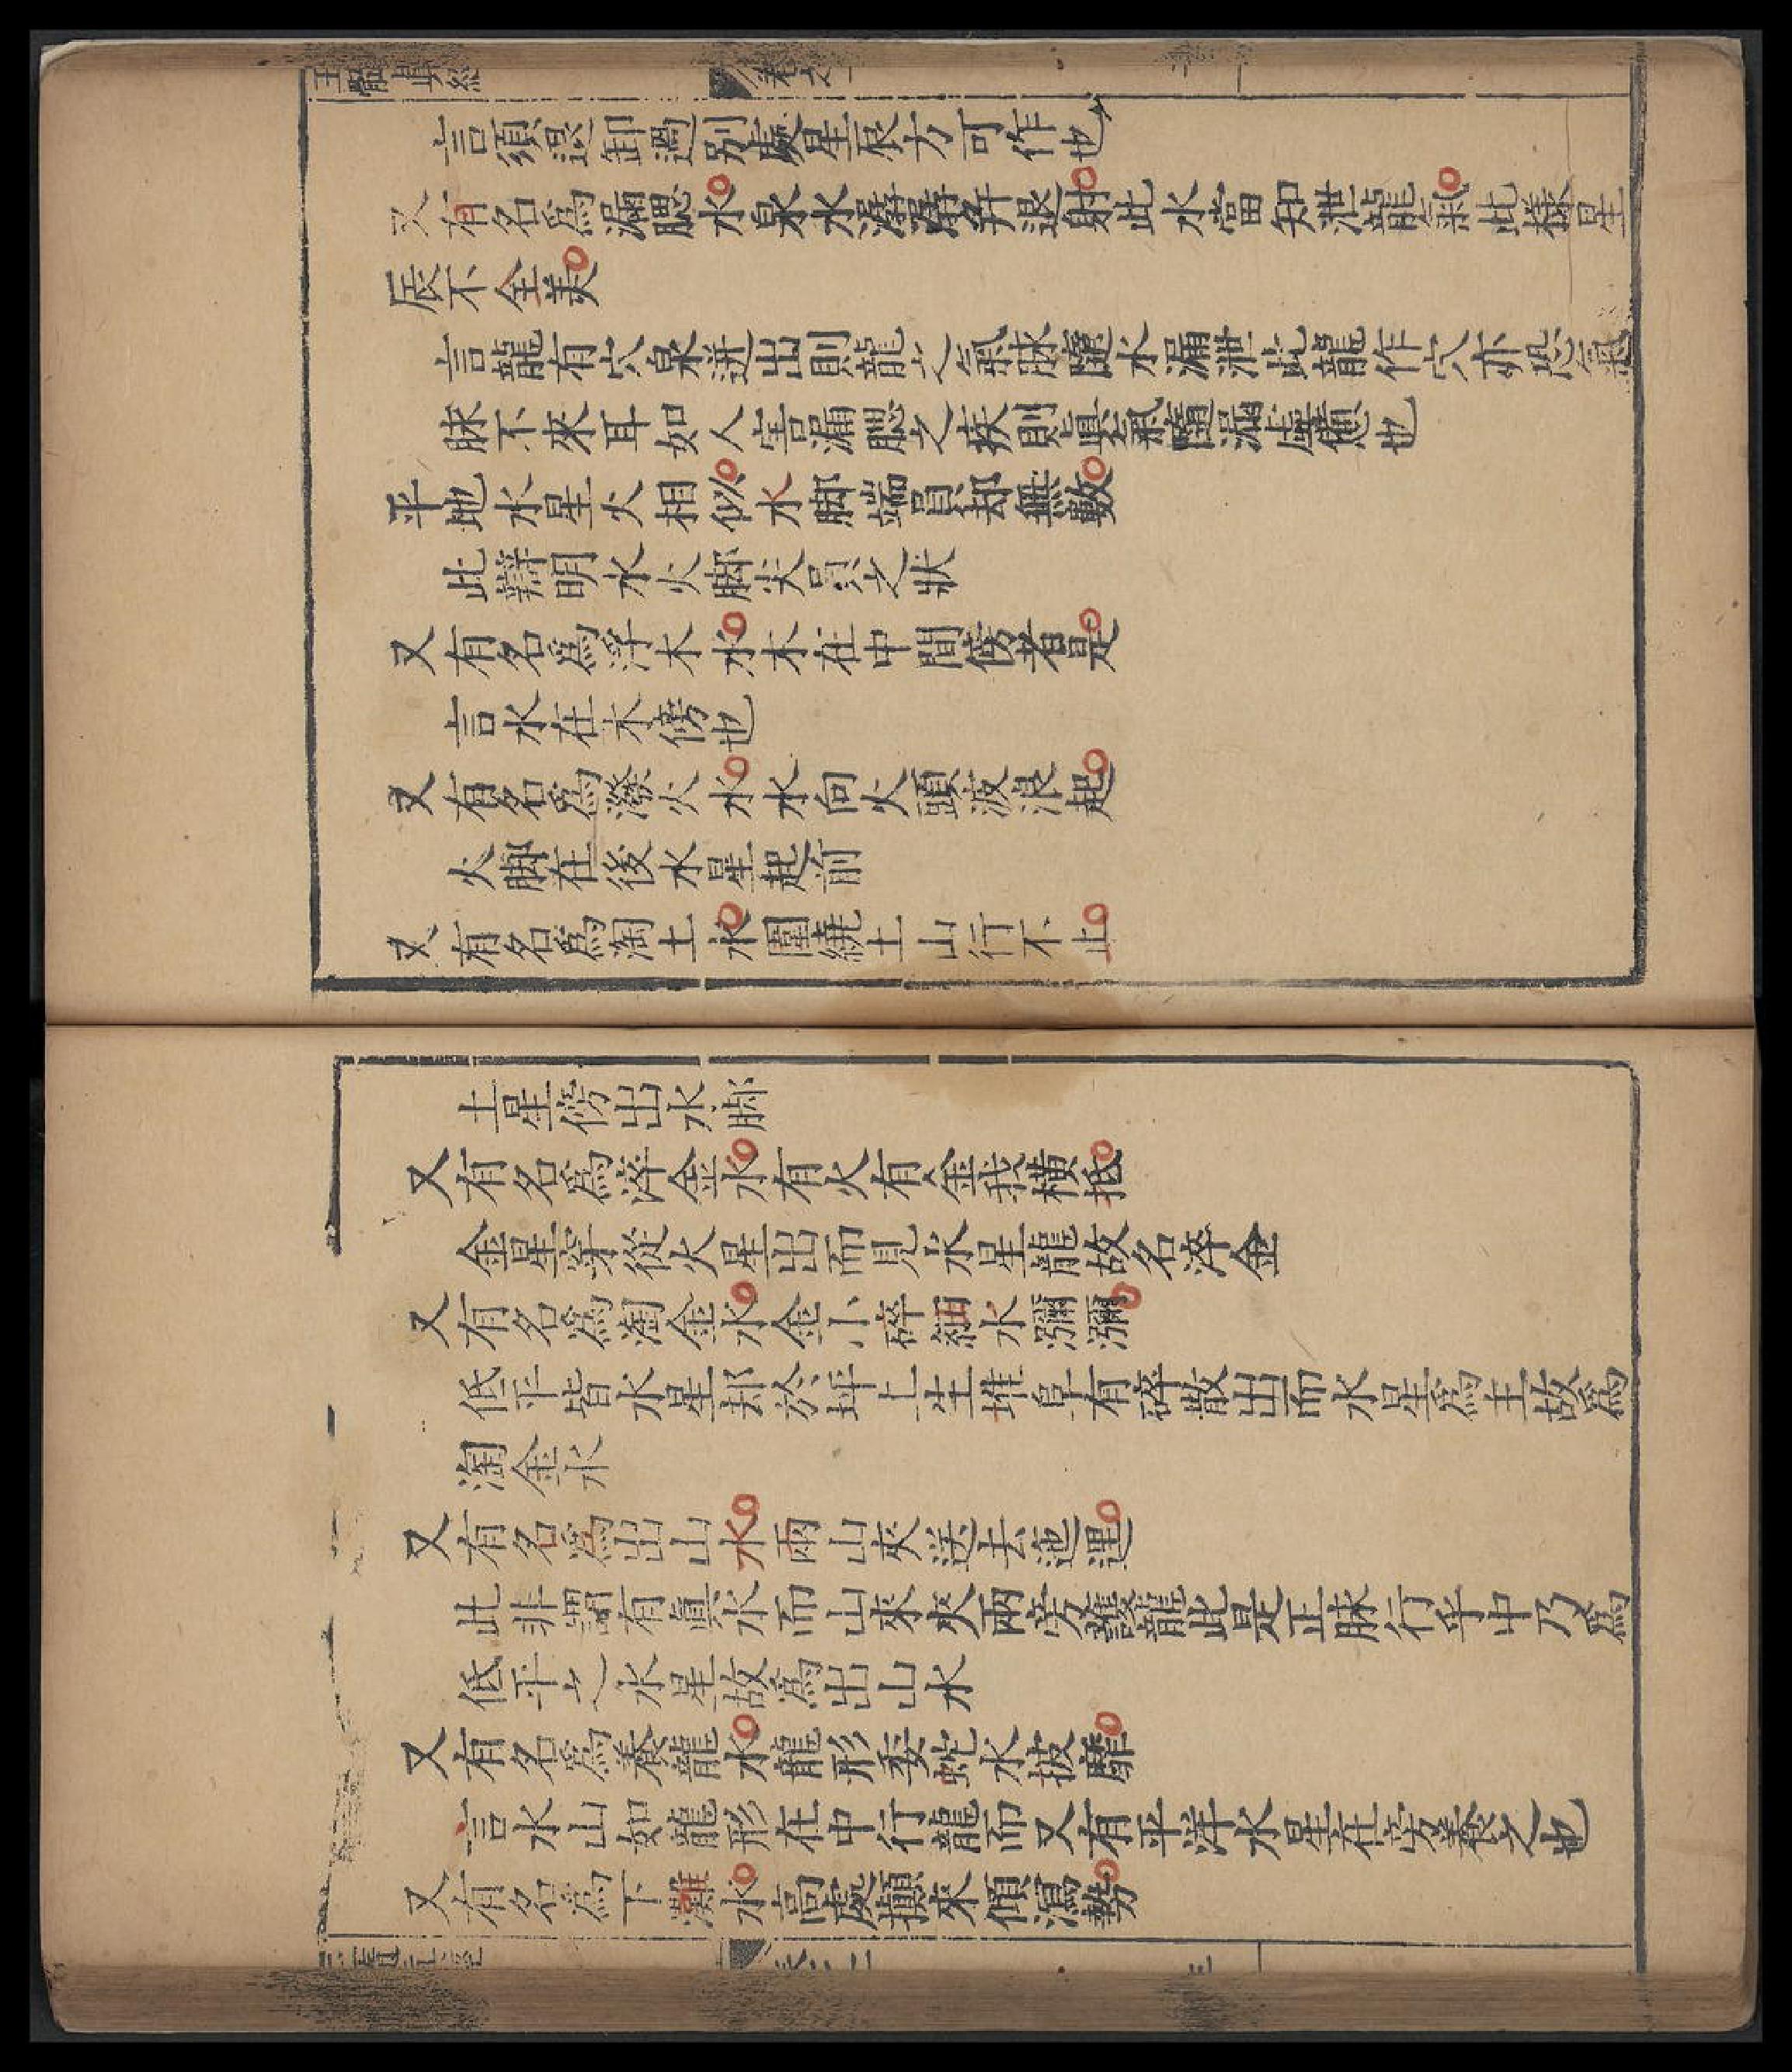 玉髓真經 卷之
言須退卸過別處星辰方可作也
又有名爲漏腮水泉水潺潺并退射此水當知泄龍氣此樣星
辰不全美
言龍有穴泉迸出則龍之氣脉隨水漏泄此龍作穴亦恐氣
脉不來耳如人害漏腮之疾則眞氣隨漏虛憊也
平地水星火相似水脚端員却無數
此辯明水火脚尖員之狀
又有名爲浮木水木在中間傍者是
言水在木傍也
又有名爲潑火水水向火頭波浪起
火脚在後水星起前
又有名爲淘土水圍繞土山行不止
土星傍出水脚
又有名爲淬金水有火有金我橫抵
金星穿從火星出而見水星龍故名淬金
又有名爲淘金水金小碎細水瀰瀰
低平皆水星却於坪上生堆阜有碎散出而水星爲主故爲
淘金水
又有名爲出山水兩山夾送去迤逦
此非謂有眞水而山來夾兩旁護龍此是正脉行乎中乃爲
低平之水星故爲出山水
又有名爲養龍水龍形委蛇水披靡
言水山如龍形在中行龍而又有平洋水星在旁養之也
又有名爲下灘水高處攧來傾瀉勢